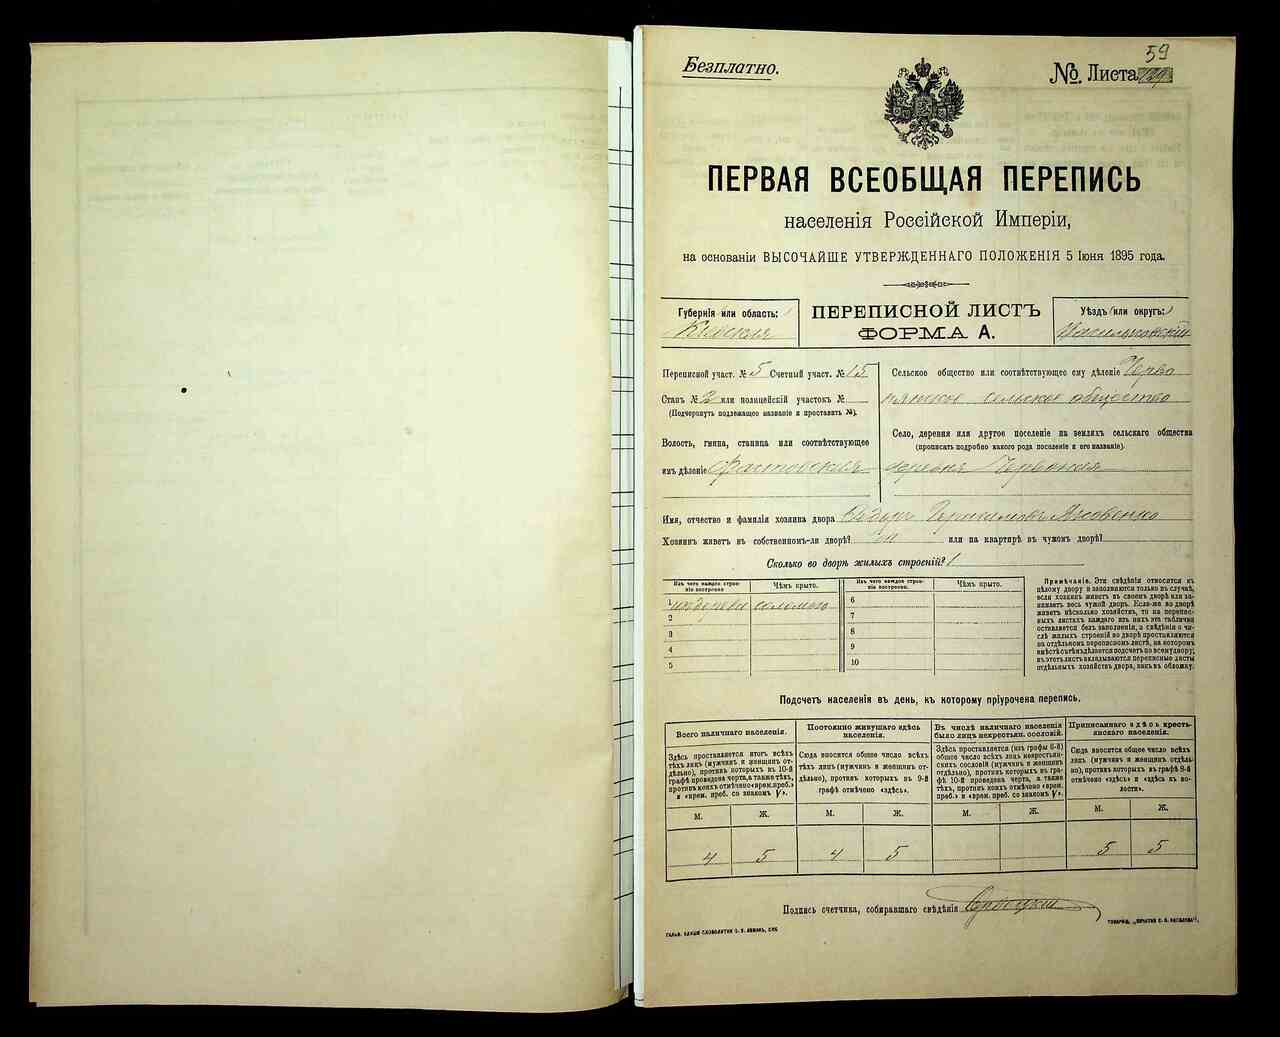 Безплатно.
59
№. Листа
ПЕРВАЯ ВСЕОБЩАЯ ПЕРЕПИСЬ
населенія Россійской Имперіи,
на основаніи ВЫСОЧАЙШЕ УТВЕРЖДЕННАГО ПОЛОЖЕНІЯ 5 Іюня 1895 года.
Губернія или область:
Кіевская
ПЕРЕПИСНОЙ ЛИСТЪ
ФОРМА А.
Уѣздъ или округъ:
Васильковскій
Переписной участ. № 5 Счетный участ. № 15
Станъ № 2 или полицейскій участокъ №
(Подчеркнуть подлежащее названіе и проставить №).
Волость, гмина, станица или соотвѣтствующее
имъ дѣленіе Фастовская
Сельское общество или соотвѣтствующее ему дѣленіе Черво
нянское сельское общество
Село, деревня или другое поселеніе на земляхъ сельскаго общества
(прописать подробно какого рода поселеніе и его названіе).
деревня Червоная
Имя, отчество и фамилія хозяина двора Яковенко
Хозяинъ живетъ въ собственномъ-ли дворѣ? или на квартирѣ въ чужомъ дворѣ?
Сколько во дворѣ жилыхъ строеній? 1
Изъ чего каждое строеніе построено
Чѣмъ крыто.
Изъ чего каждое строеніе построено
Чѣмъ крыто.
1 изъ дерева соломою
2
3
4
5
6
7
8
9
10
Примѣчаніе. Эти свѣдѣнія относятся къ
цѣлому двору и заполняются только въ случаѣ,
если хозяинъ живетъ въ своемъ дворѣ или за-
нимаетъ весь чужой дворъ. Если-же во дворѣ
живетъ нѣсколько хозяйствъ, то на перепис-
ныхъ листахъ каждаго изъ нихъ эта табличка
оставляется безъ заполненія, а свѣдѣнія о чи-
слѣ жилыхъ строеній во дворѣ проставляются
на отдѣльномъ переписномъ листѣ, на которомъ
вмѣстѣ съ тѣмъ дѣлается подсчетъ по всему двору;
въ этотъ листъ вкладываются переписные листы
отдѣльныхъ хозяйствъ двора, какъ въ обложку.
Подсчетъ населенія въ день, къ которому пріурочена перепись.
Всего наличнаго населенія.
Здѣсь проставляется итогъ всѣхъ
тѣхъ лицъ (мужчинъ и женщинъ от-
дѣльно), противъ которыхъ въ 10-й
графѣ проведена черта, а также тѣхъ,
противъ коихъ отмѣчено «врем. преб.»
и «врем. преб. со знакомъ V».
Постоянно живущаго здѣсь
населенія.
Сюда вносится общее число всѣхъ
тѣхъ лицъ (мужчинъ и женщинъ от-
дѣльно), противъ которыхъ въ 9-й
графѣ отмѣчено «здѣсь».
Въ числѣ наличнаго населенія
было лицъ некрестьян. сословій.
Здѣсь проставляется (изъ графы 6-й)
общее число всѣхъ лицъ некрестьян-
скихъ сословій (мужчинъ и женщинъ
отдѣльно), противъ которыхъ въ гра-
фѣ 10-й проведена черта, а также
тѣхъ, противъ коихъ отмѣчено «врем.
преб.» и «врем. преб. со знакомъ V».
Приписаннаго здѣсь кресть-
янскаго населенія.
Сюда вносится общее число всѣхъ
лицъ (мужчинъ и женщинъ отдѣль-
но), противъ которыхъ въ графѣ 8-й
отмѣчено «здѣсь» и «здѣсь въ во-
лости».
М. Ж. М. Ж. М. Ж. М. Ж.
4 5 4 5 5 5
Подпись счетчика, собиравшаго свѣдѣнія